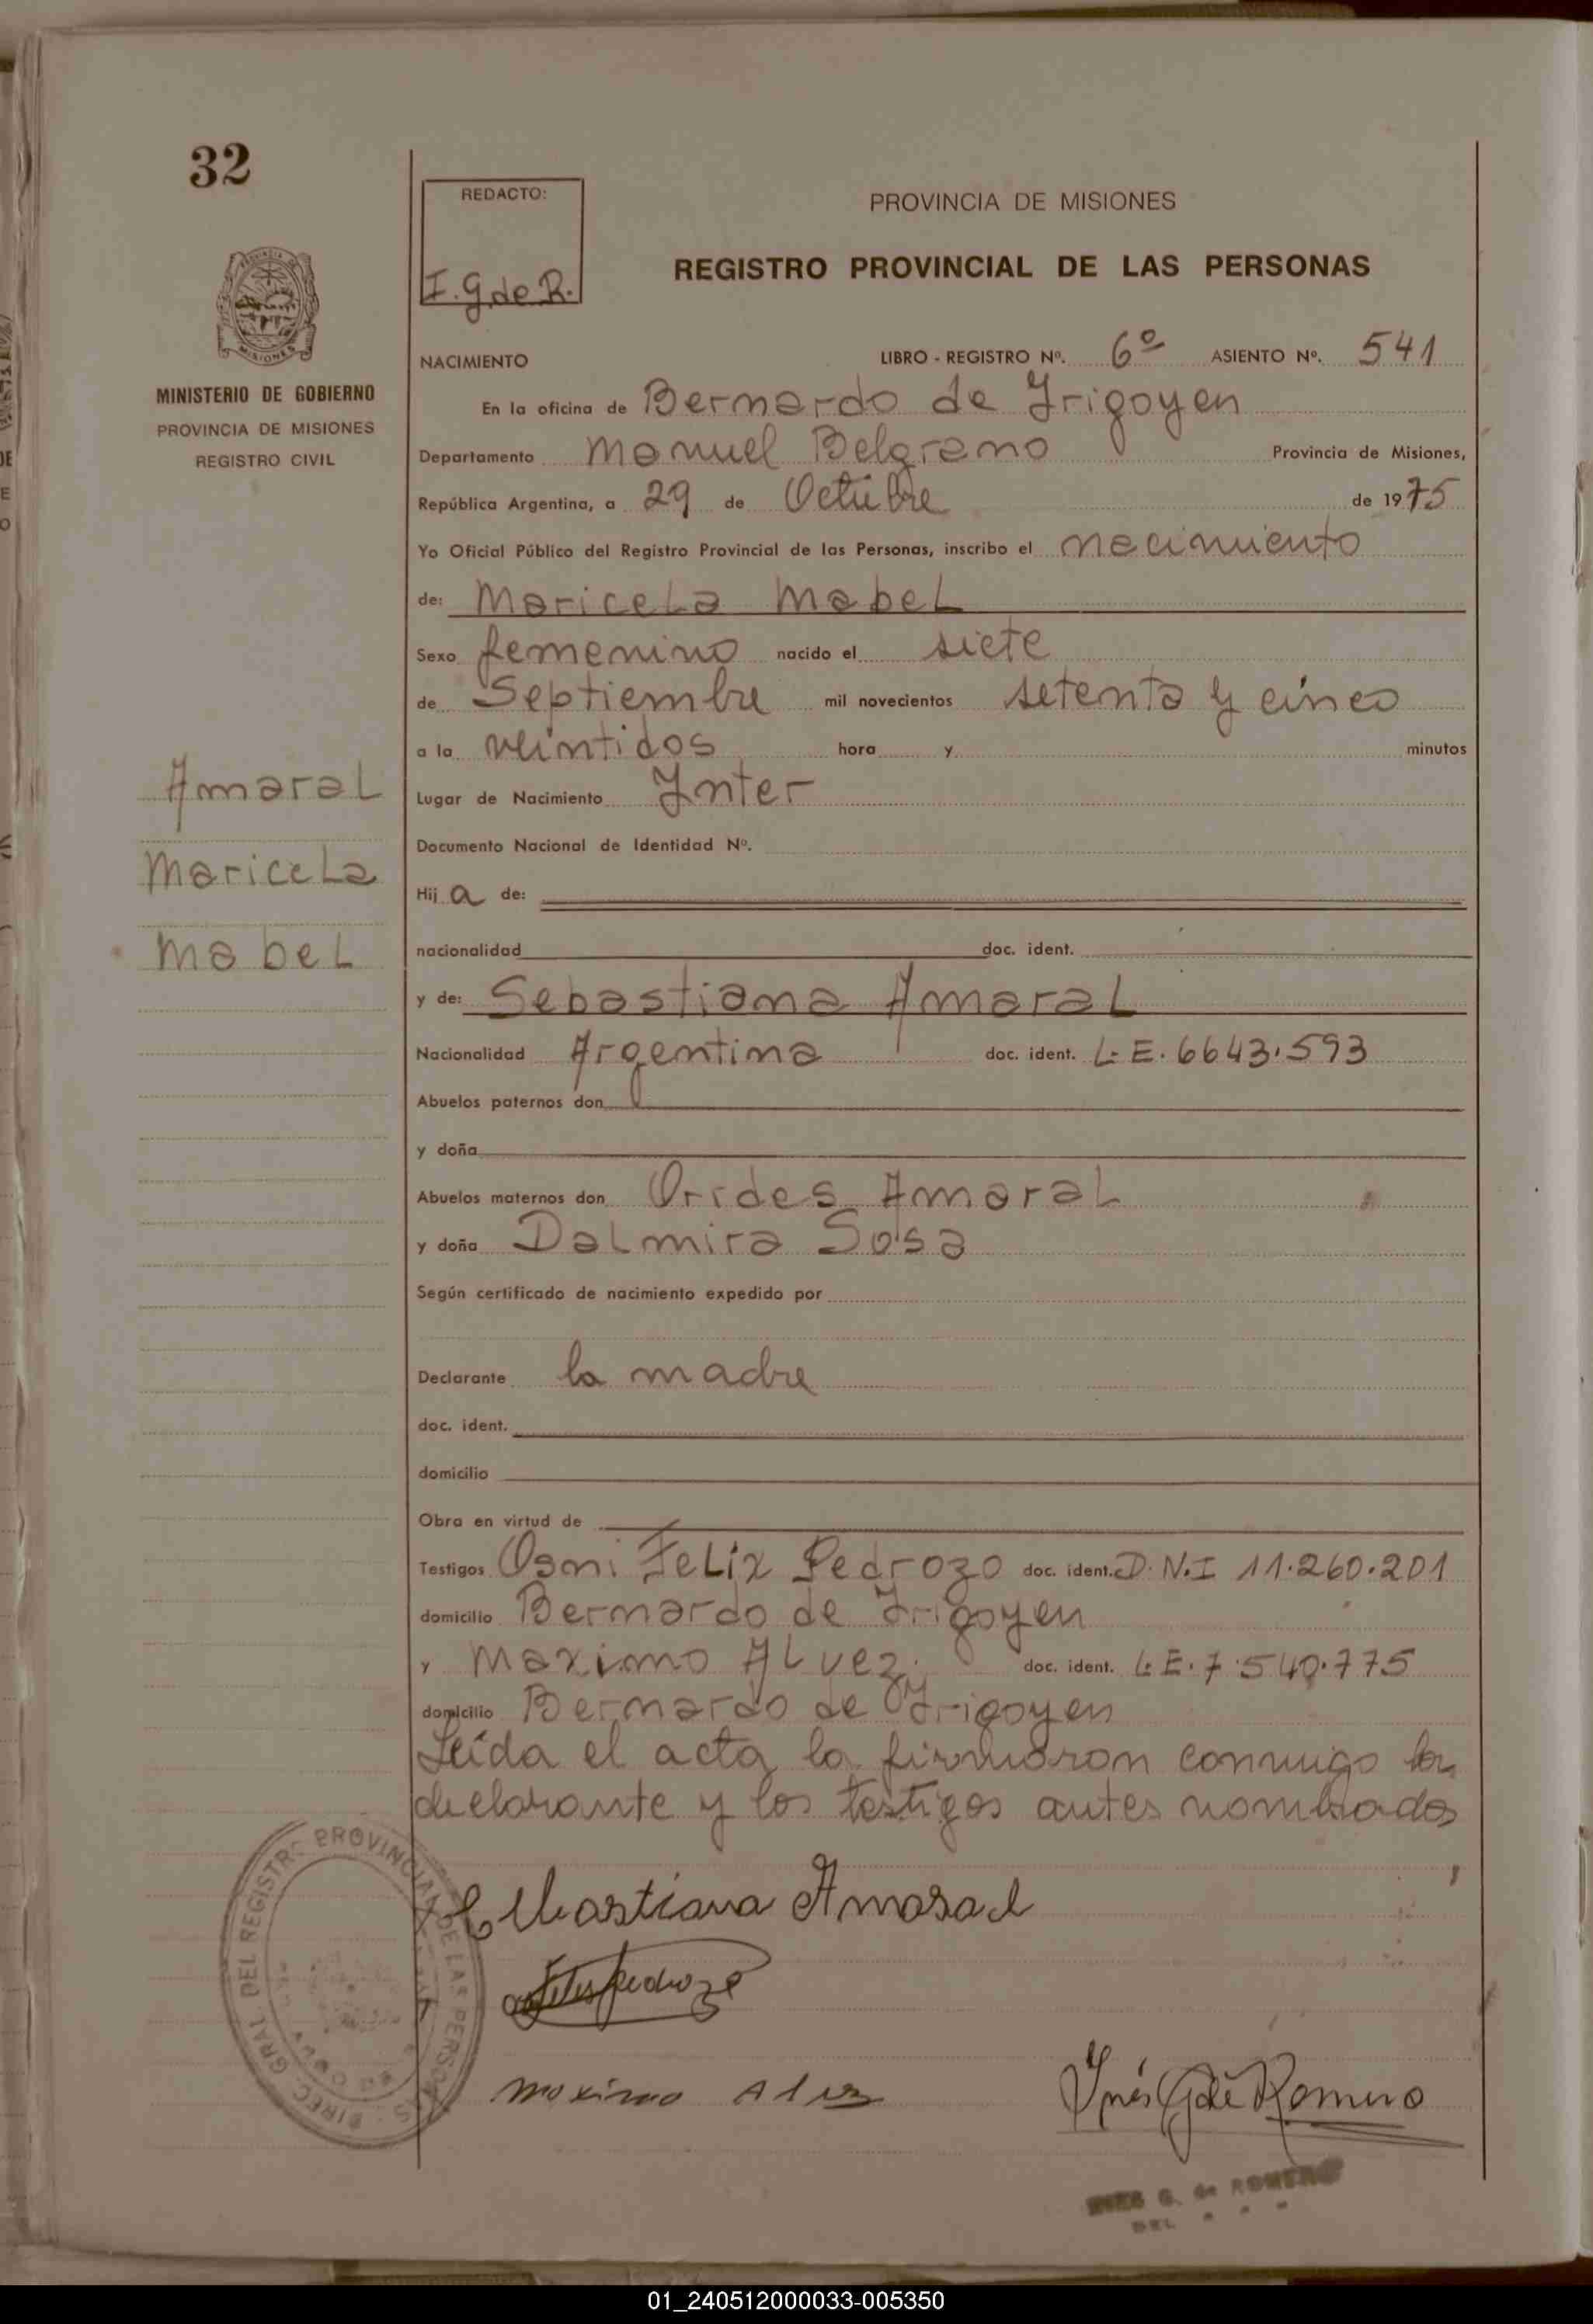 32
REDACTO:
I. G. de R.
PROVINCIA DE MISIONES
REGISTRO PROVINCIAL DE LAS PERSONAS
MISIONES
MINISTERIO DE GOBIERNO
PROVINCIA DE MISIONES
REGISTRO CIVIL
NACIMIENTO LIBRO - REGISTRO Nº. 6º ASIENTO Nº. 541
En la oficina de Bernardo de Yrigoyen
Departamento Manuel Belgrano Provincia de Misiones,
República Argentina, a 29 de Octubre de 1975
Yo Oficial Público del Registro Provincial de las Personas, inscribo el nacimiento
de: Maricela Mabel
Sexo femenino nacido el siete
de Septiembre mil novecientos setenta y cinco
a la veintidos hora y minutos
Lugar de Nacimiento Ynter
Documento Nacional de Identidad Nº.
Hij a de:
nacionalidad doc. ident.
y de: Sebastiana Amaral
Nacionalidad Argentina doc. ident. L.E. 6643.593
Abuelos paternos don
y doña
Abuelos maternos don Orides Amaral
y doña Dalmira Sosa
Según certificado de nacimiento expedido por
Declarante la madre
doc. ident.
domicilio
Obra en virtud de
Testigos Osni Felix Pedrozo doc. ident. D.N.I 11.260.201
domicilio Bernardo de Yrigoyen
y Maximo Alvez. doc. ident. L.E. 7.540.775
domicilio Bernardo de Yrigoyen
Leída el acta la firmaron conmigo la
declarante y los testigos antes nombrados
Amaral
Maricela
Mabel
Sebastiana Amaral
Pedrozo
maximo
Ynés G de Romero
DIREC. GRAL. DEL REGISTRO PROVINCIAL DE LAS PERSONAS
INES G. de ROMERO
01_240512000033-005350